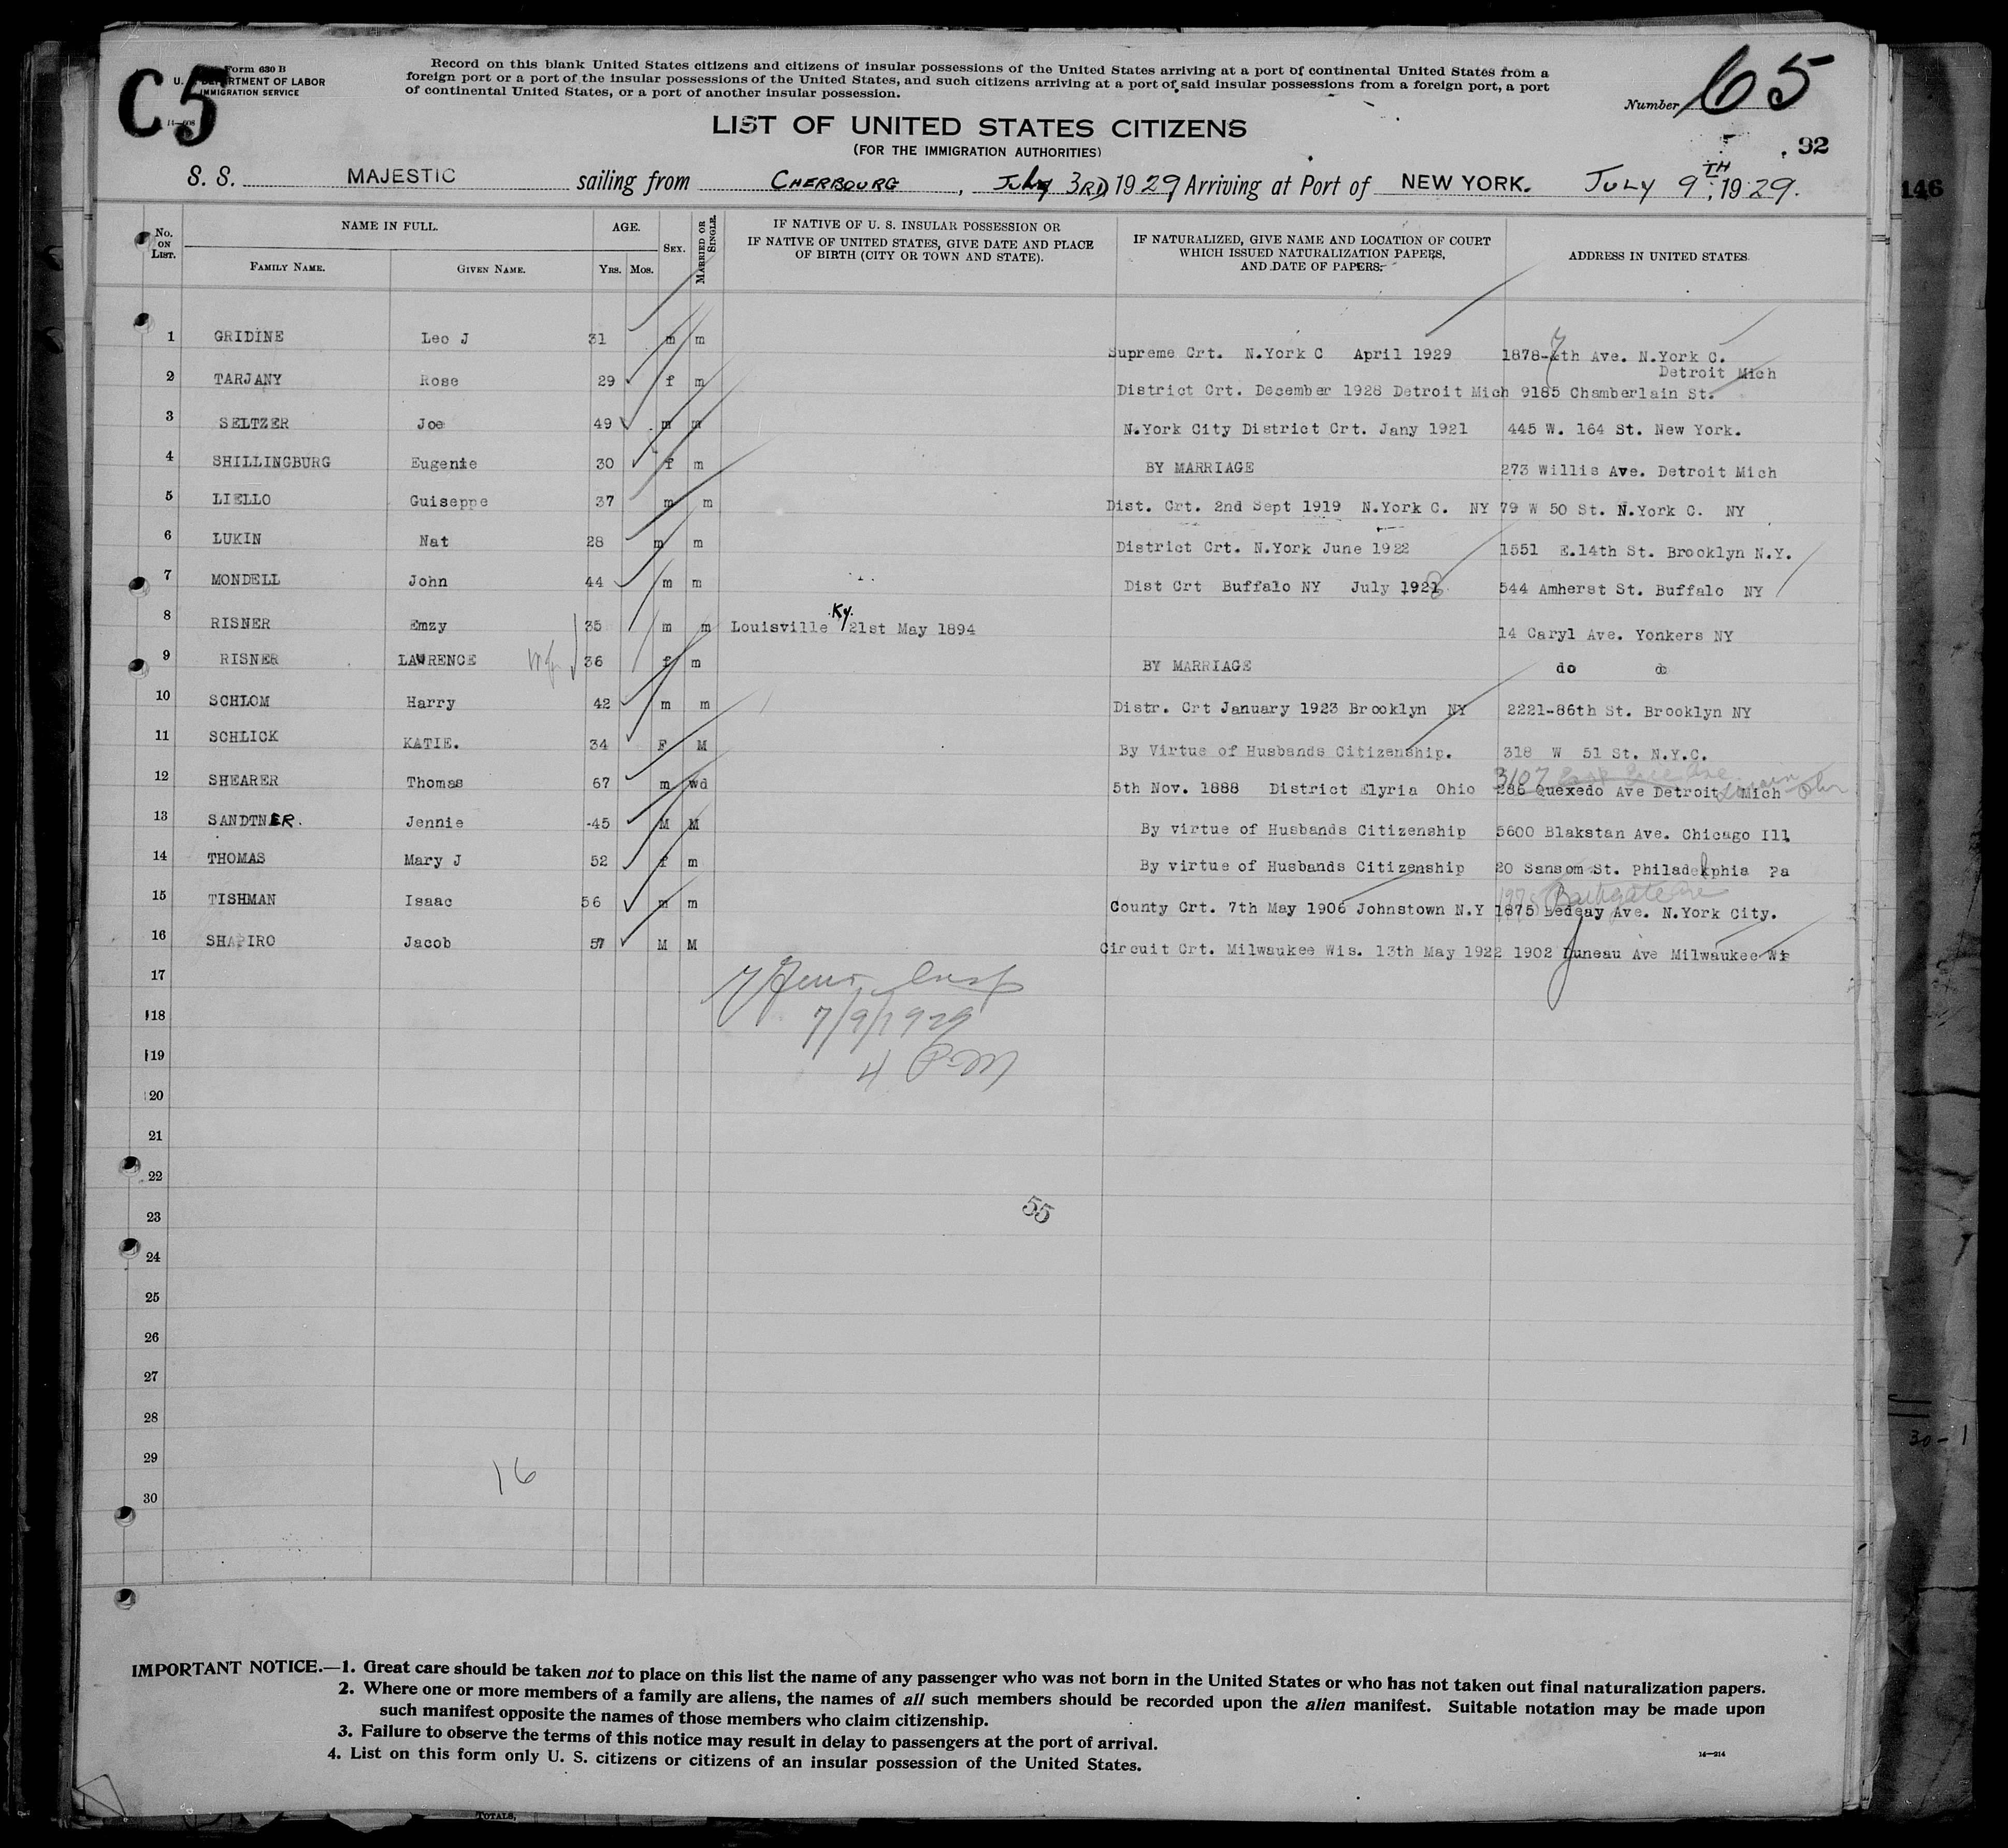 C5
Form 630 B
U. S. DEPARTMENT OF LABOR
IMMIGRATION SERVICE
Record on this blank United States citizens and citizens of insular possessions of the United States arriving at a port of continental United States from a
foreign port or a port of the insular possessions of the United States, and such citizens arriving at a port of said insular possessions from a foreign port, a port
of continental United States, or a port of another insular possession.
Number 65
LIST OF UNITED STATES CITIZENS
(FOR THE IMMIGRATION AUTHORITIES)
92
S. S. MAJESTIC sailing from CHERBOURG, July 3RD 1929 Arriving at Port of NEW YORK. JULY 9TH, 1929.
146
No. ON LIST. NAME IN FULL. AGE. SEX. MARRIED OR SINGLE. IF NATIVE OF U. S. INSULAR POSSESSION OR
IF NATIVE OF UNITED STATES, GIVE DATE AND PLACE
OF BIRTH (CITY OR TOWN AND STATE). IF NATURALIZED, GIVE NAME AND LOCATION OF COURT
WHICH ISSUED NATURALIZATION PAPERS,
AND DATE OF PAPERS. ADDRESS IN UNITED STATES
FAMILY NAME. GIVEN NAME. YRS. MOS.
1 GRIDINE Leo J 31 m m Supreme Crt. N.York C April 1929 1878-7th Ave. N.York C.
2 TARJANY Rose 29 f m District Crt. December 1928 Detroit Mich 9185 Chamberlain St. Detroit Mich
3 SELTZER Joe 49 m m N.York City District Crt. Jany 1921 445 W. 164 St. New York.
4 SHILLINGBURG Eugenie 30 f m BY MARRIAGE 273 Willis Ave. Detroit Mich
5 LIELLO Guiseppe 37 m m Dist. Crt. 2nd Sept 1919 N.York C. NY 79 W 50 St. N.York C. NY
6 LUKIN Nat 28 m m District Crt. N.York June 1922 1551 E.14th St. Brooklyn N.Y.
7 MONDELL John 44 m m Dist Crt Buffalo NY July 1928 544 Amherst St. Buffalo NY
8 RISNER Emzy 35 m m Louisville Ky. 21st May 1894 14 Caryl Ave. Yonkers NY
9 RISNER LAWRENCE 36 f m BY MARRIAGE do do
10 SCHLOM Harry 42 m m Distr. Crt January 1923 Brooklyn NY 2221-86th St. Brooklyn NY
11 SCHLICK KATIE. 34 F M By Virtue of Husbands Citizenship. 318 W 51 St. N.Y.C.
12 SHEARER Thomas 67 m wd 5th Nov. 1888 District Elyria Ohio 3107 286 Quexedo Ave Detroit Mich Lorain Ohio
13 SANDTNER. Jennie -45 M M By virtue of Husbands Citizenship 5600 Blakstan Ave. Chicago Ill
14 THOMAS Mary J 52 f m By virtue of Husbands Citizenship 20 Sansom St. Philadelphia Pa
15 TISHMAN Isaac 56 m m County Crt. 7th May 1906 Johnstown N.Y 1975 Bathgate Ave 1875 Bedgay Ave. N.York City.
16 SHAPIRO Jacob 57 M M Circuit Crt. Milwaukee Wis. 13th May 1922 1902 Juneau Ave Milwaukee Wis
17
18
19
7/9/1929
4 PM
20
21
22
23
55
24
25
26
27
28
29
30
16
30-1
IMPORTANT NOTICE.—1. Great care should be taken not to place on this list the name of any passenger who was not born in the United States or who has not taken out final naturalization papers.
2. Where one or more members of a family are aliens, the names of all such members should be recorded upon the alien manifest. Suitable notation may be made upon
such manifest opposite the names of those members who claim citizenship.
3. Failure to observe the terms of this notice may result in delay to passengers at the port of arrival.
4. List on this form only U. S. citizens or citizens of an insular possession of the United States.
14—214
TOTALS,